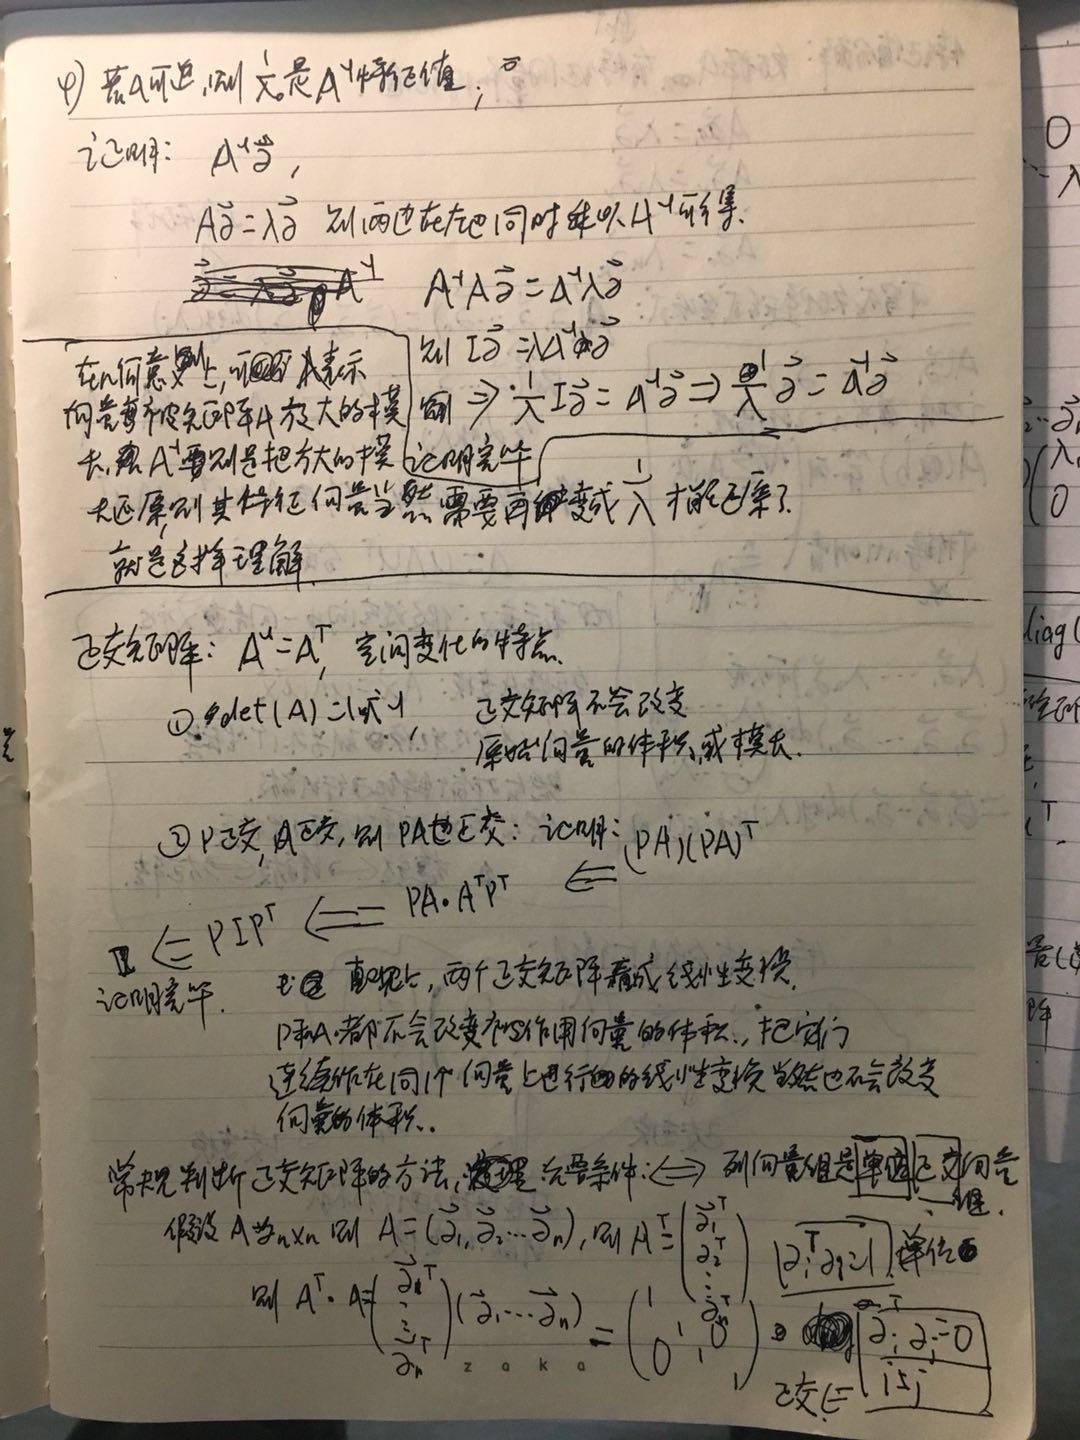 4) 若A可逆,则 1/λ。是A⁻¹特征值;
证明: A⁻¹a⃗,
Aa⃗=λa⃗ 则两边在左边同时乘以A⁻¹可得.
A⁻¹Aa⃗=A⁻¹λa⃗
则 Ia⃗=λA⁻¹a⃗
⇒ 1/λ Ia⃗ = A⁻¹a⃗ ⇒ 1/λ a⃗ = A⁻¹a⃗
证明完毕
在几何意义上,可 λ表示
向量被矩阵A放大的模
长, A⁻¹则是把放大的模
长还原,则其特征向量当然需要再变成 1/λ 才能还原了.
就是这样理解.
正交矩阵: A⁻¹=Aᵀ, 空间变化的特点.
① det(A)=1或-1, 正交矩阵不会改变
原始向量的体积,或模长.
② P正交,A正交,则PA也正交: 证明: (PA)(PA)ᵀ
I ⇐ PIPᵀ ⇐ PA·AᵀPᵀ ⇐
证明完毕.
直观上,两个正交矩阵看成线性变换.
P和A都不会改变作用向量的体积.,把它们
连续作在同1个向量上进行的线性变换当然也不会改变
向量的体积.
常规判断正交矩阵的方法, 充要条件: ⇔ 列向量组是单位正交向量
组.
假设A为n×n 则 A=(a⃗₁,a⃗₂...a⃗ₙ),则Aᵀ=(a⃗₁ᵀ a⃗₂ᵀ ⋮ a⃗ₙᵀ) aᵢᵀaᵢ=1 单位
则 Aᵀ·A=(a⃗₁ᵀ ⋮ a⃗ₙᵀ)(a⃗₁...a⃗ₙ) = (1 1 0 0 1 1) aᵢᵀaⱼ=0
正交 ⇐ i≠j
zaka